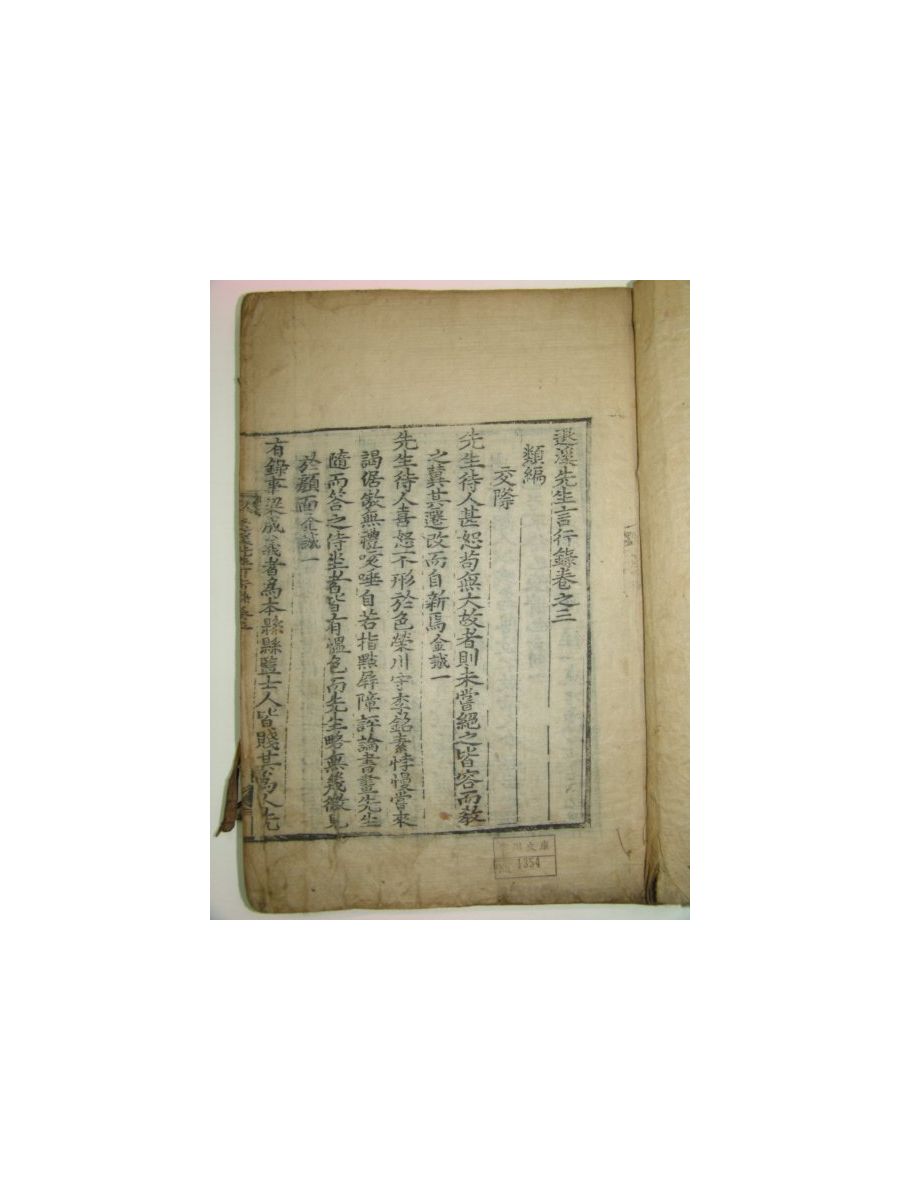 退溪先生言行錄卷之三
類編
交際
先生待人甚恕苟無大故者則未嘗絕之皆容而敎
之冀其遷改而自新焉金誠一
先生待人喜怒不形於色榮川守李銘素悖慢嘗來
謁倨傲無禮咳唾自若指點屛障評論書畫先生
隨而答之侍坐者皆有慍色而先生略無幾微見
於顏面金誠一
有錄事梁成義者爲本縣縣監士人皆賤其爲人先
文庫
1354